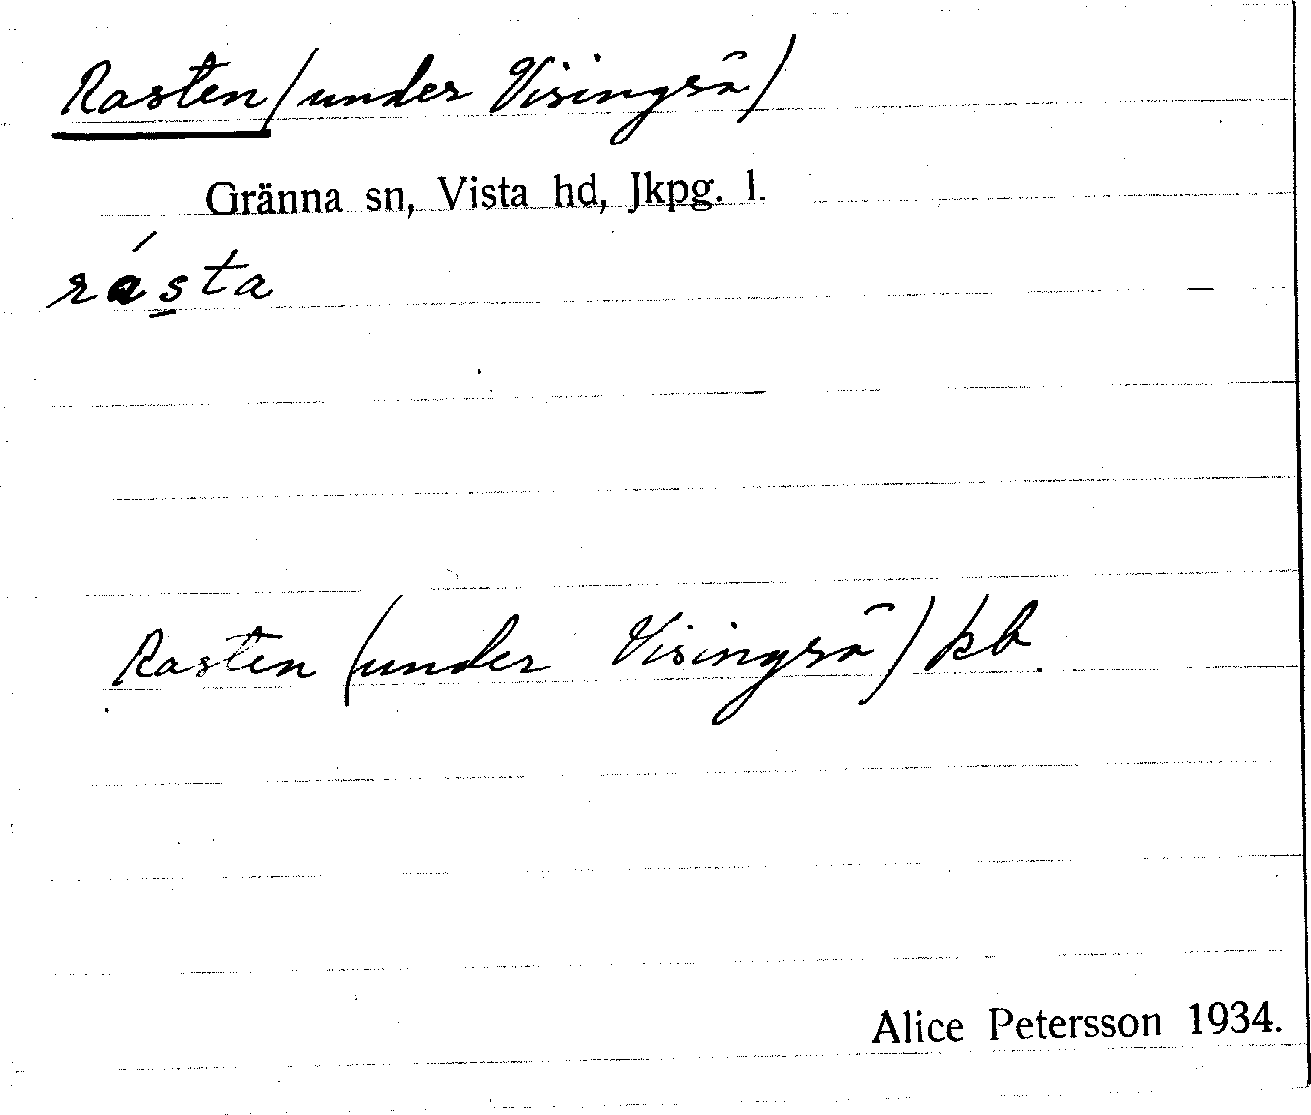 Rasten (under Visingsö)
Gränna sn, Vista hd, Jkpg. l.
rásta
Rasten (under Visingsö) kb.
Alice Petersson 1934.